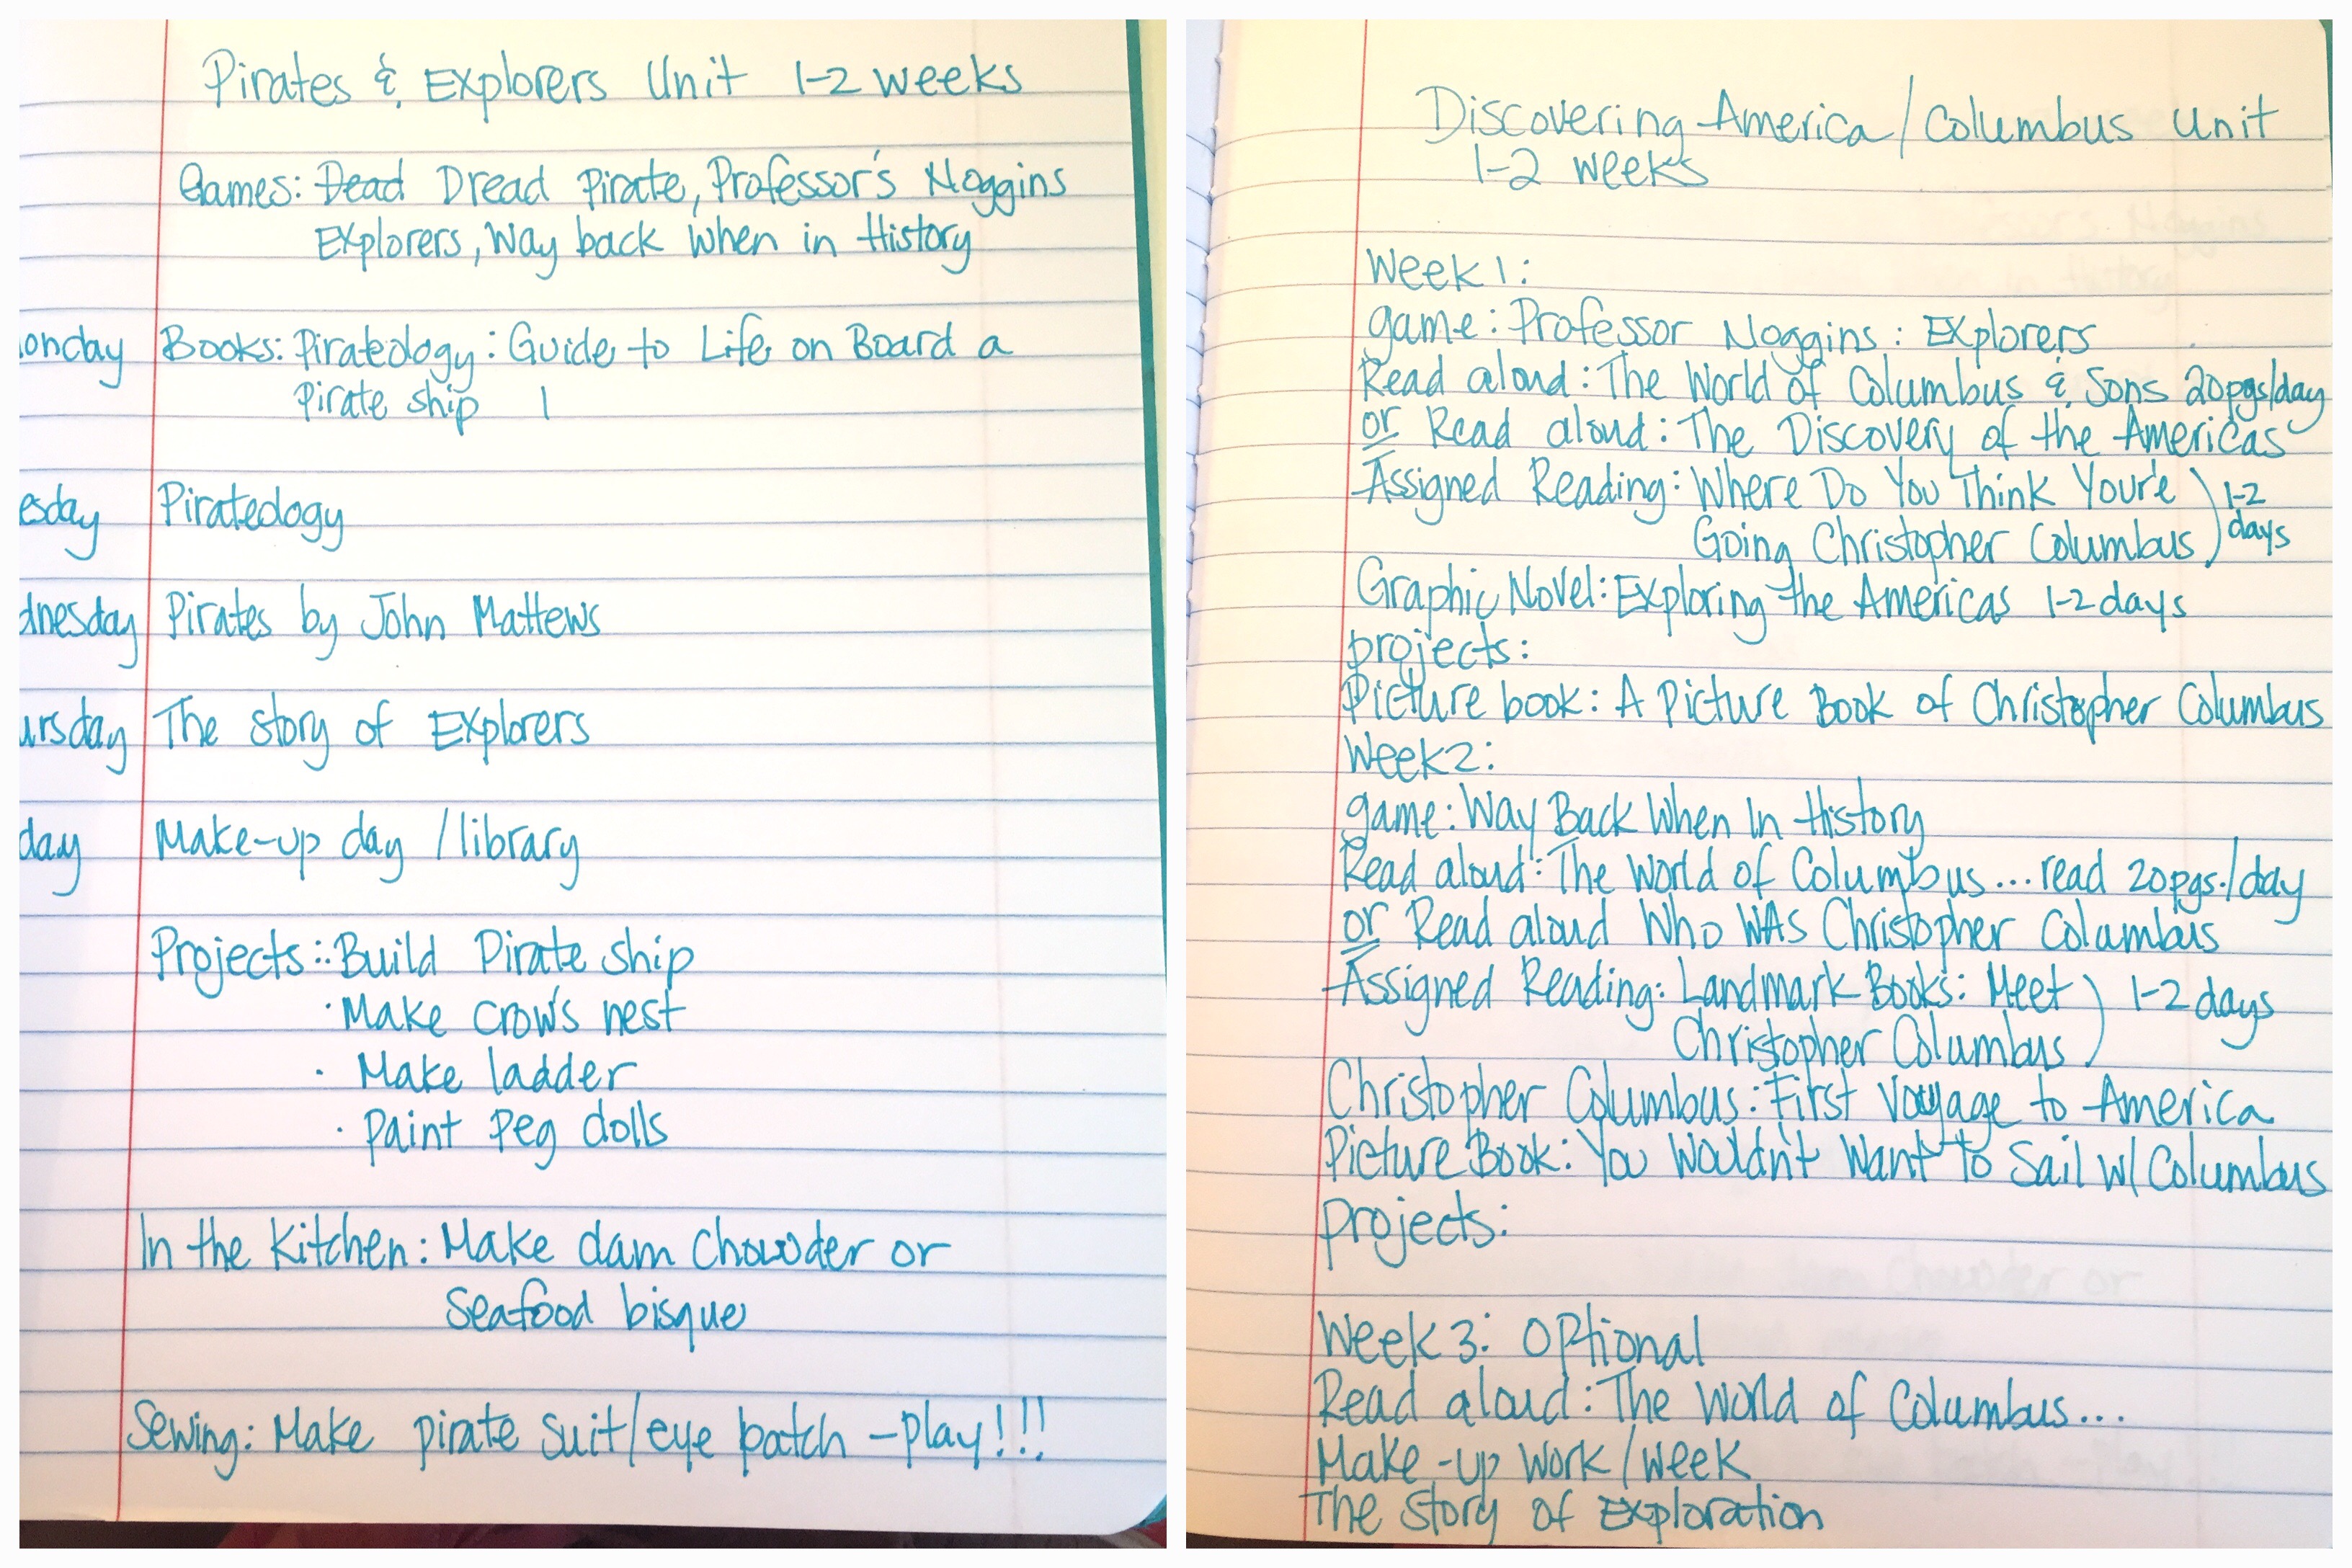 Pirates & Explorers Unit 1-2 weeks
Games: Dead Dread Pirate, Professor's Noggins
Explorers, Way back when in History
onday Books: Pirateology: Guide to Life on Board a
Pirate ship 1
esday Pirateology
dnesday Pirates by John Mattews
ursday The story of Explorers
day Make-up day / library
Projects: · Build Pirate ship
· Make crow's nest
· Make ladder
· Paint Peg dolls
In the Kitchen: Make clam Chowder or
Seafood bisque
Sewing: Make pirate suit/eye patch - play!!!
Discovering America / Columbus Unit
1-2 weeks
Week 1:
game: Professor Noggins: Explorers
Read aloud: The World of Columbus & Sons 20pgs/day
or Read aloud: The Discovery of the Americas
Assigned Reading: Where Do You Think You're ) 1-2
Going Christopher Columbus ) days
Graphic Novel: Exploring the Americas 1-2 days
projects:
Picture book: A Picture Book of Christopher Columbus
Week 2:
game: Way Back When In History
Read aloud: The World of Columbus ... read 20pgs./day
or Read aloud Who WAs Christopher Columbus
Assigned Reading: Landmark Books: Meet ) 1-2 days
Christopher Columbus )
Christopher Columbus: First Voyage to America
Picture Book: You Wouldn't Want to Sail w/ Columbus
projects:
Week 3: Optional
Read aloud: The World of Columbus...
Make-up work / week
The story of Exploration